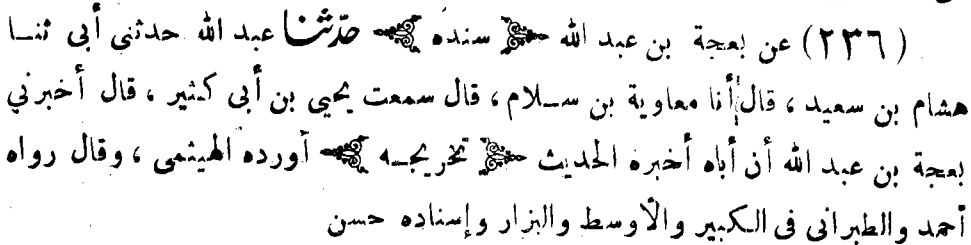 (٢٣٦) عن بعجة بن عبد الله ﴿ سنده ﴾ حدّثنا عبد الله حدثنى أبى ثنـا
هشام بن سعيد ، قال أنا معاوية بن سـلام ، قال سمعت يحيى بن أبى كثير ، قال أخبرني
بعجة بن عبد الله أن أباه أخبره الحديث ﴿ تخريجـه ﴾ أورده الهيثمى ، وقال رواه
أحمد والطبرانى فى الـكبير والأوسط والبزار وإسناده حسن